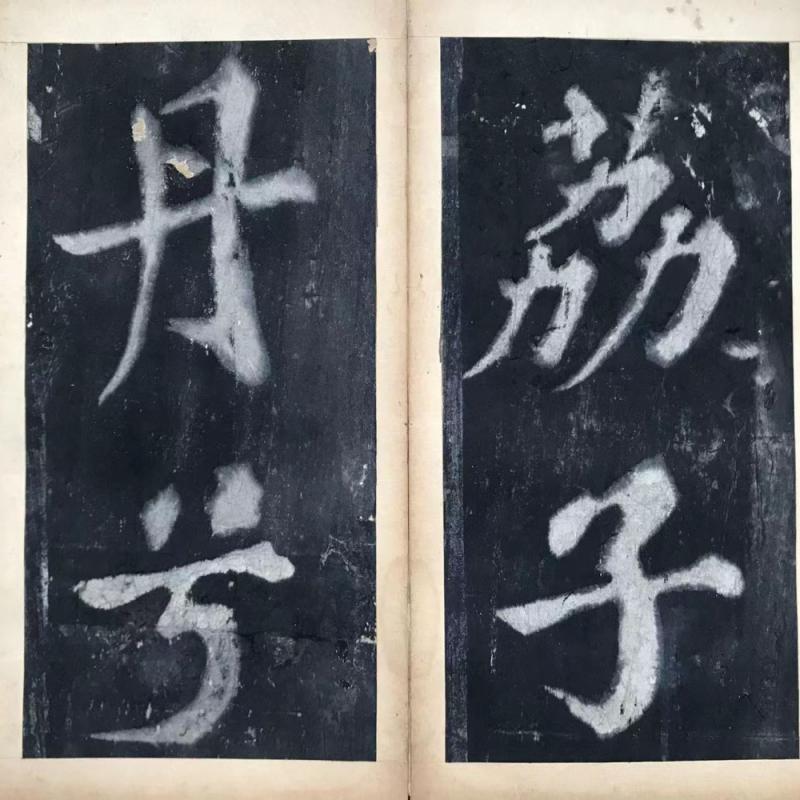 荔子
丹兮